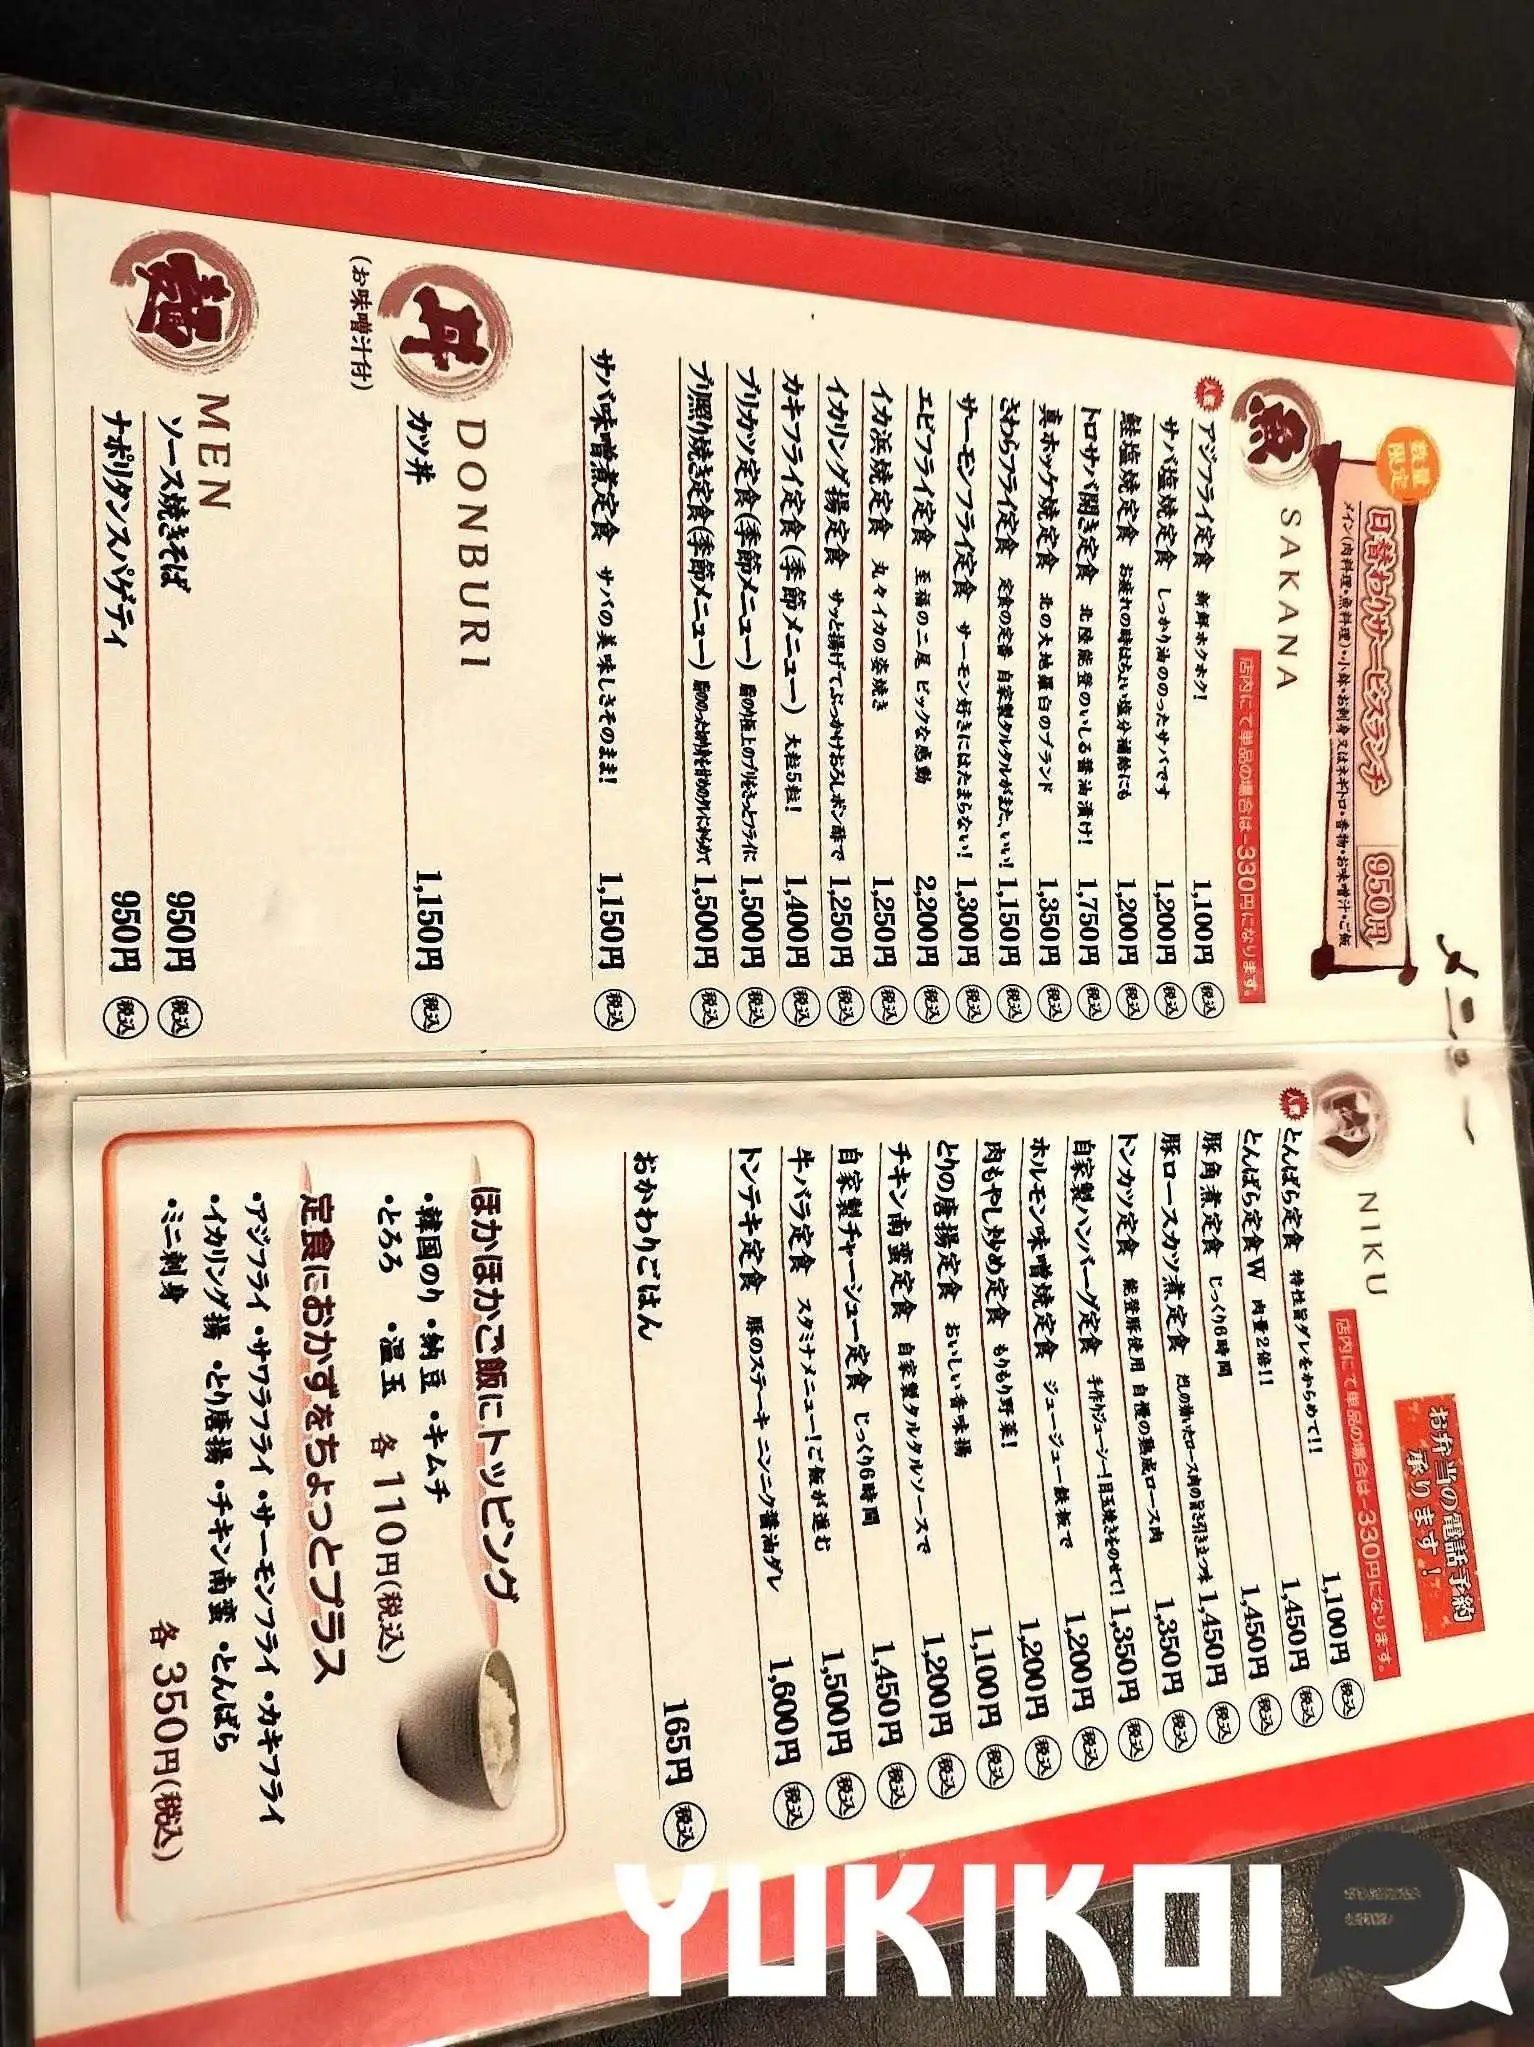 メニュー
数量限定
日替わりサービスランチ 950円
メイン(肉料理・魚料理)・小鉢・お刺身又はネギトロ・香物・お味噌汁・ご飯
魚 SAKANA
店内にて単品の場合は-330円になります。
人気 アジフライ定食 新鮮ホクホク! 1,100円 税込
サバ塩焼定食 しっかり油ののったサバです 1,200円 税込
鮭塩焼定食 お疲れの時はちょい塩分補給にも 1,200円 税込
トロサバ開き定食 北陸能登のいしる醤油漬け! 1,750円 税込
真ホッケ焼定食 北の大地羅臼のブランド 1,350円 税込
さわらフライ定食 定食の定番 自家製タルタルがまた、いい! 1,150円 税込
サーモンフライ定食 サーモン好きにはたまらない! 1,300円 税込
エビフライ定食 至福の二尾 ビックな感動 2,200円 税込
イカ浜焼定食 丸々イカの姿焼き 1,250円 税込
イカリング揚定食 サッと揚げてぶっかけおろしポン酢で 1,250円 税込
カキフライ定食(季節メニュー) 大粒5粒! 1,400円 税込
ブリカツ定食(季節メニュー) 脂のり極上のブリをさっとフライに 1,500円 税込
ブリ照り焼き定食(季節メニュー) 1,500円 税込
サバ味噌煮定食 サバの美味しさそのまま! 1,150円 税込
丼 DONBURI
(お味噌汁付)
カツ丼 1,150円 税込
麺 MEN
ソース焼きそば 950円 税込
ナポリタンスパゲティ 950円 税込
お弁当の電話予約
承ります!
肉 NIKU
店内にて単品の場合は-330円になります。
人気 とんばら定食 特性旨ダレをからめて!! 1,100円 税込
とんばら定食W 肉量2倍!! 1,450円 税込
豚角煮定食 じっくり6時間 1,450円 税込
豚ロースカツ煮定食 1,450円 税込
トンカツ定食 能登豚使用 自慢の熟成ロース肉 1,350円 税込
自家製ハンバーグ定食 手作りジューシー!目玉焼きをのせて! 1,350円 税込
ホルモン味噌焼定食 ジュージュー鉄板で 1,200円 税込
肉もやし炒め定食 もりもり野菜! 1,200円 税込
とりの唐揚定食 おいしい香味揚 1,100円 税込
チキン南蛮定食 自家製タルタルソースで 1,200円 税込
自家製チャーシュー定食 じっくり6時間 1,450円 税込
牛バラ定食 スタミナメニュー!ご飯が進む 1,500円 税込
トンテキ定食 豚のステーキ ニンニク醤油ダレ 1,600円 税込
おかわりごはん 165円 税込
ほかほかご飯にトッピング
・韓国のり ・納豆 ・キムチ
・とろろ ・温玉 各110円(税込)
定食におかずをちょっとプラス
・アジフライ ・サワラフライ ・サーモンフライ ・カキフライ
・イカリング揚 ・とり唐揚 ・チキン南蛮 ・とんばら
・ミニ刺身 各350円(税込)
YUKIKOI